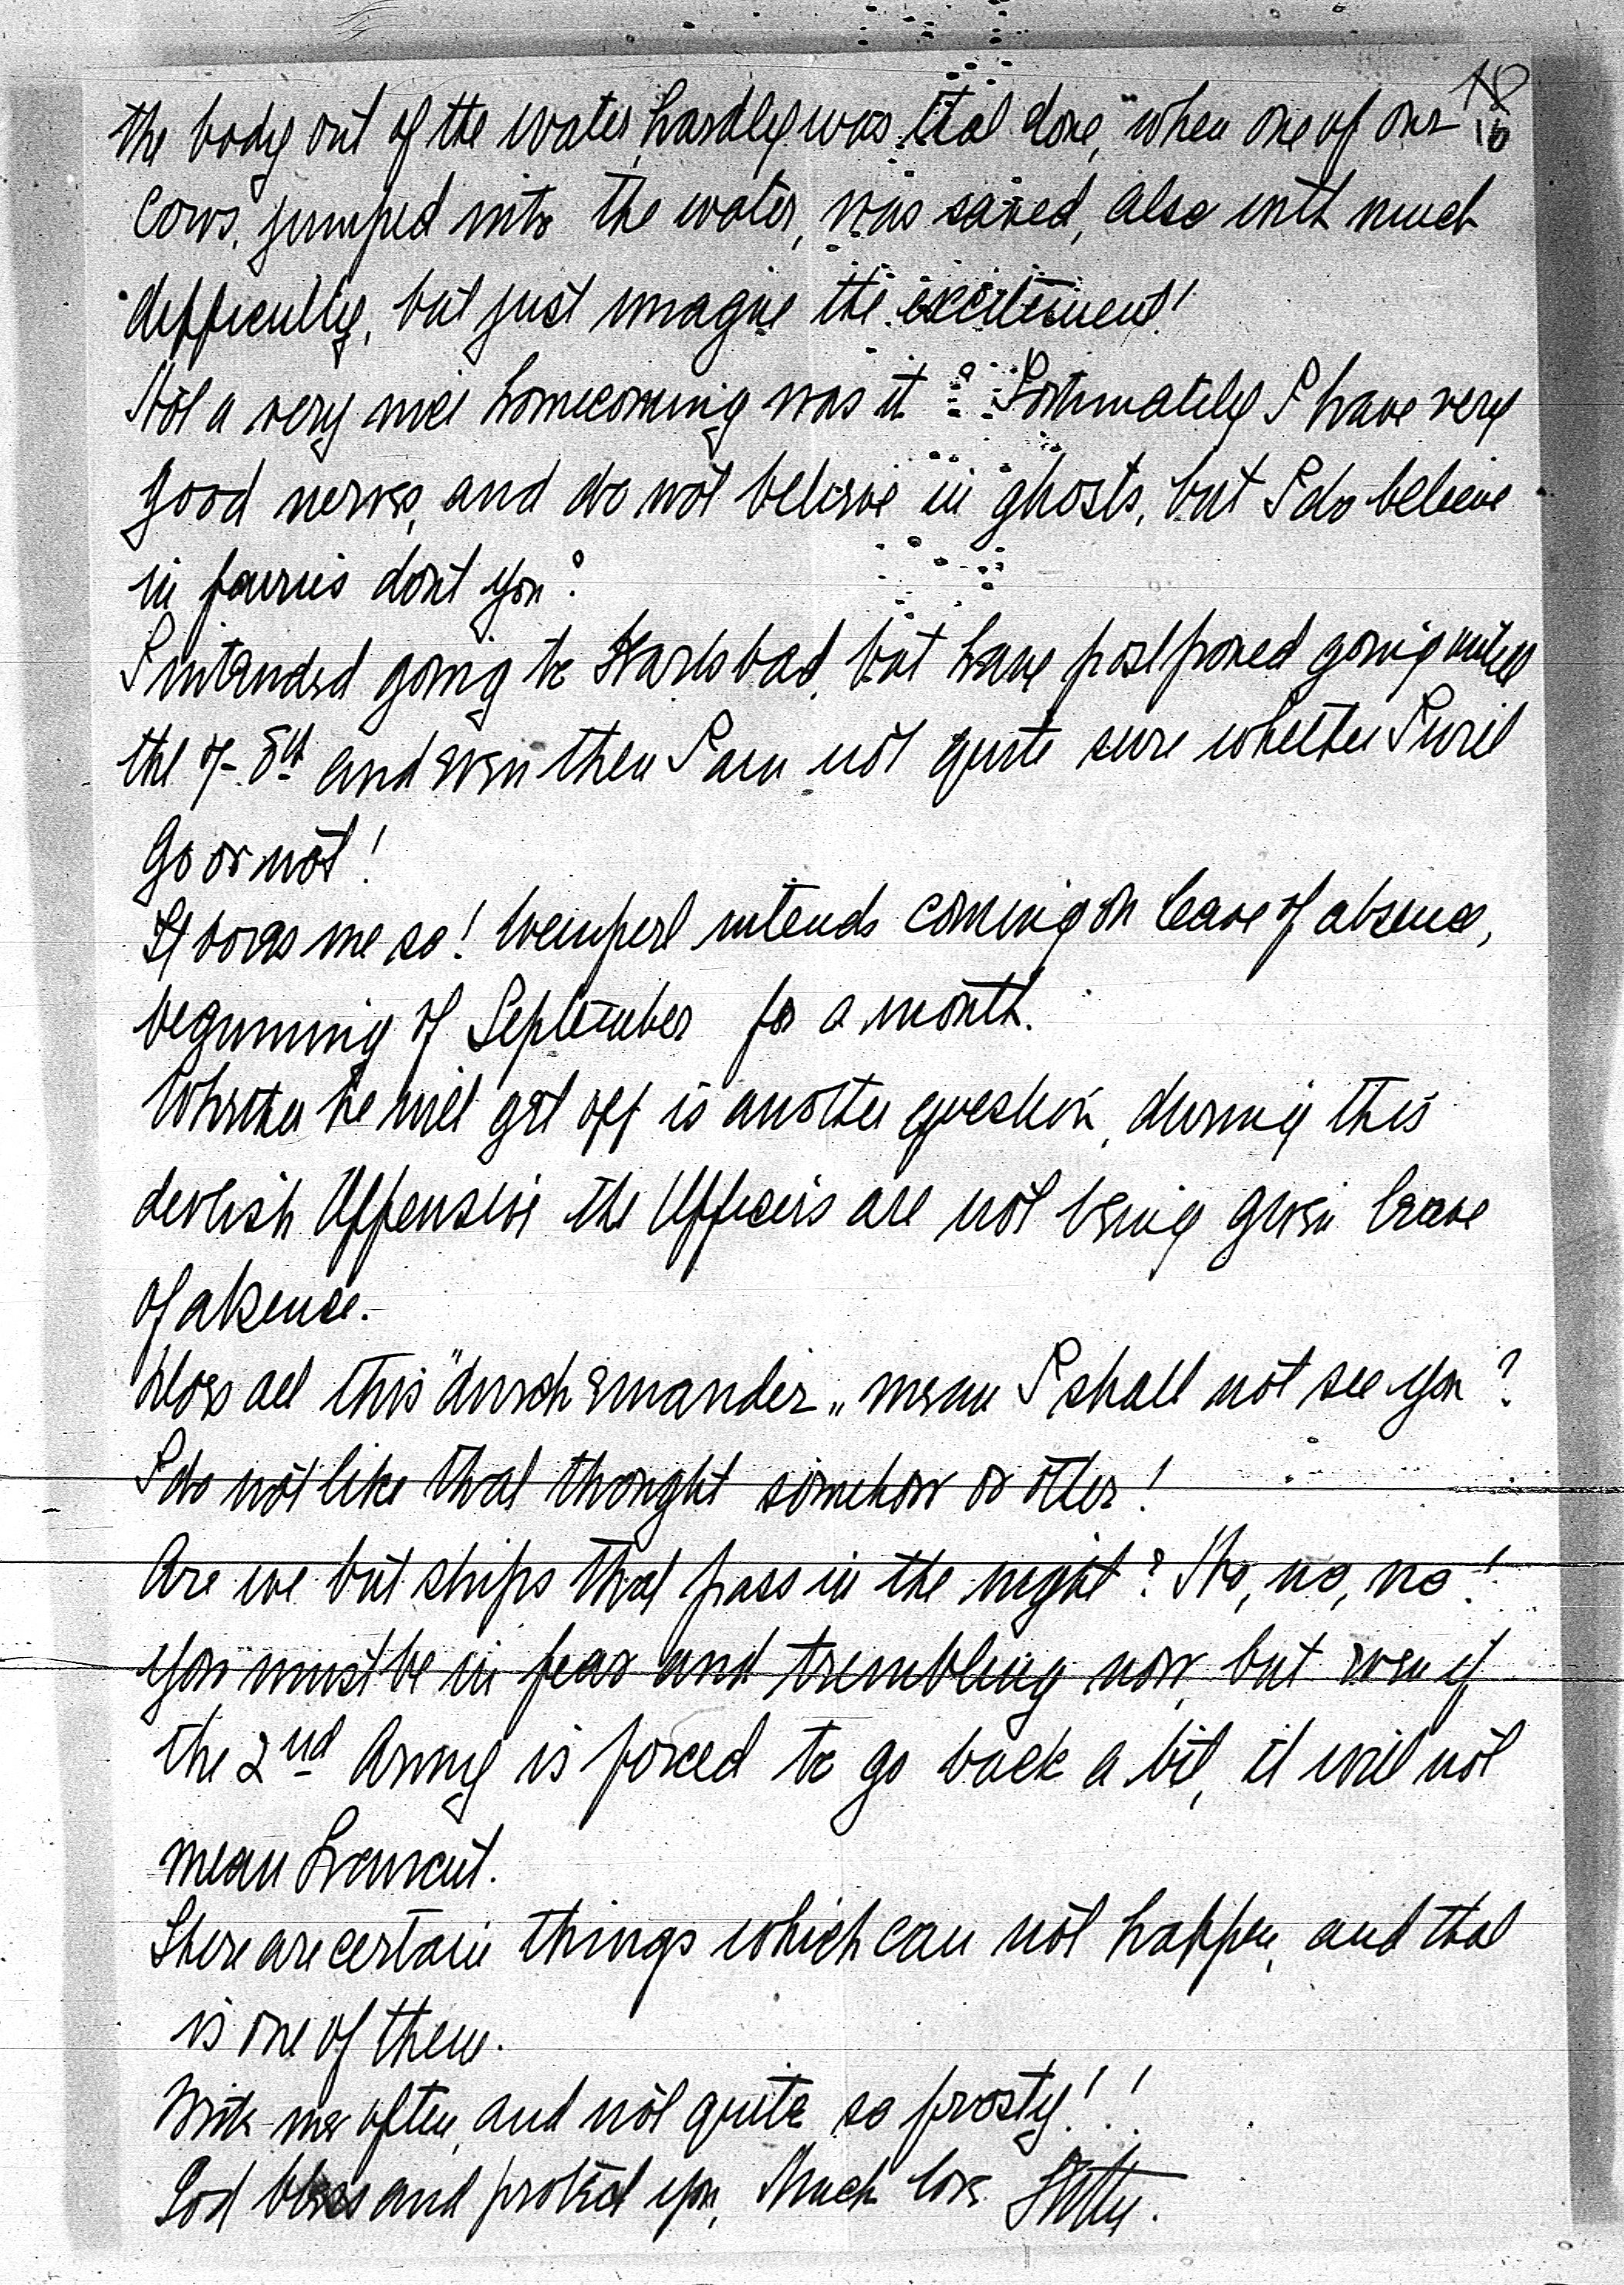 18
16
the body out of the water, hardly was that done, when one of our
cows, jumped into the water, was saved, also with much
difficulty, but just imagine the excitement!
Not a very nice homecoming was it? Fortunately I have very
good nerves, and do not believe in ghosts, but I do believe
in fairies dont you?
I intended going to Karlsbad, but have postponed going until
the 7-8th and even then I am not quite sure whether I will
go or not!
It bores me so! intends coming on leave of absence,
beginning of September for a month.
Whether he will get off is another question, during this
devlish Offensive the Officers are not being given leave
of absence.-
Does all this "durch einander„ mean I shall not see you?
I do not like that thought somehow or other!
Are we but ships that pass in the night? No, no, no!
You must be in fear and trembling now, but even if
the 2nd Army is forced to go back a bit, it will not
mean
There are certain things which can not happen, and that
is one of them.
Write me often, and not quite so frosty!!
God bless and protect you, Much love